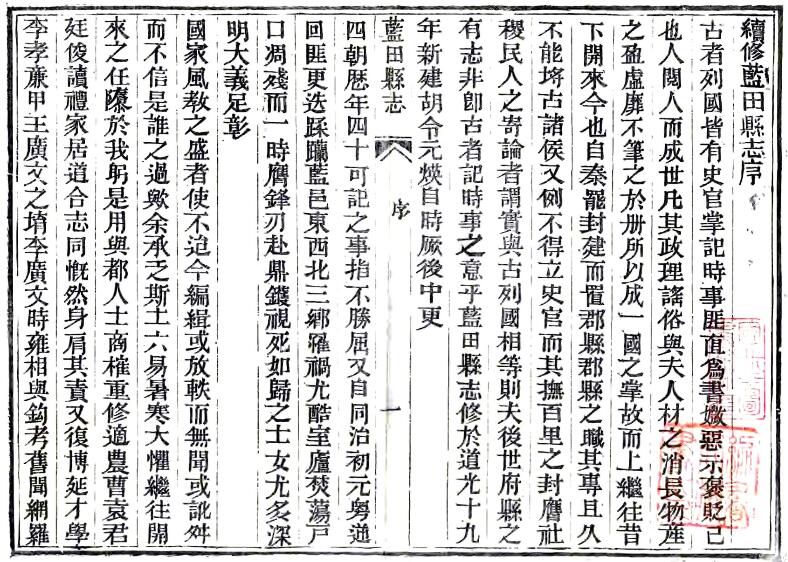 續修藍田縣志序
古者列國皆有史官掌記時事匪直爲書媺惡示褒貶已
也人閱人而成世凡其政理謠俗與夫人材之消長物產
之盈虛靡不筆之於册所以成一國之掌故而上繼往昔
下開來今也自秦罷封建而置郡縣郡縣之職其專且久
不能埒古諸侯又例不得立史官而其撫百里之封膺社
稷民人之寄論者謂實與古列國相等則夫後世府縣之
有志非卽古者記時事之意乎藍田縣志修於道光十九
年新建胡令元煐自時厥後中更
藍田縣志 序 一
四朝歷年四十可記之事指不勝屈又自同治初元粵逆
回匪更迭蹂躪藍邑東西北三鄉罹禍尤酷室廬焚蕩戸
口凋殘而一時膺鋒刃赴鼎鑊視死如歸之士女尤多深
明大義足彰
國家風敎之盛者使不迨今編緝或放軼而無聞或訛舛
而不信是誰之過歟余承乏斯土六易暑寒大懼繼往開
來之任隳於我躬是用與都人士商榷重修適農曹袁君
廷俊讀禮家居道合志同慨然身肩其責又復博延才學
李孝廉甲王廣文之堉李廣文時雍相與鉤考舊聞網羅